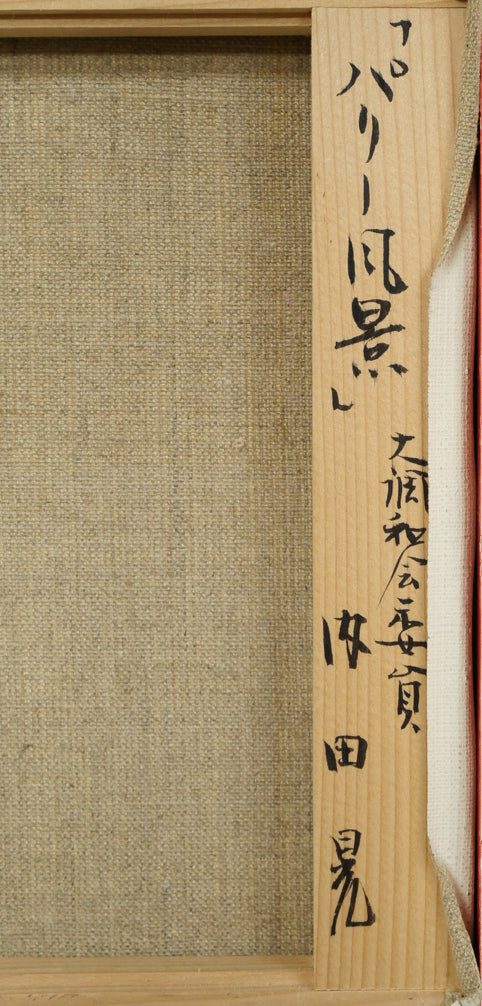 「パリー風景」
大調和会委員
内田晃